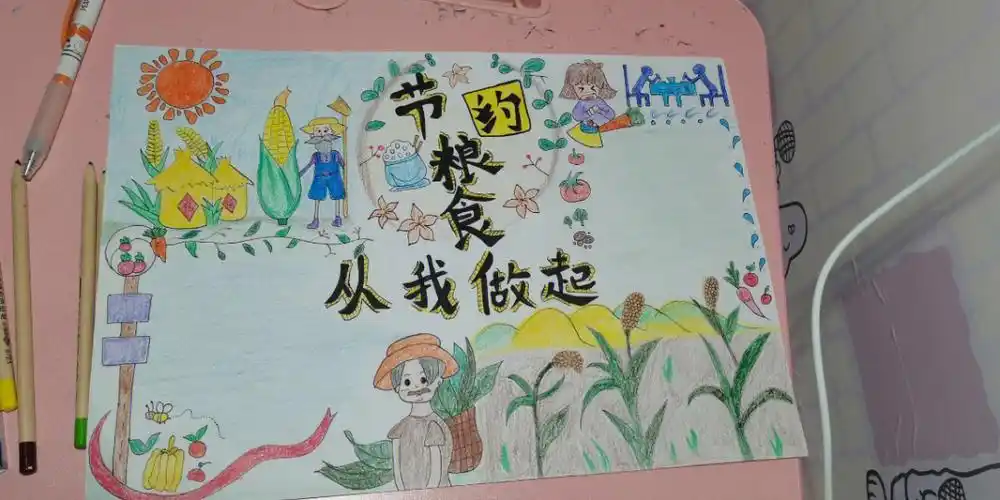 节约
粮
食
从我做起